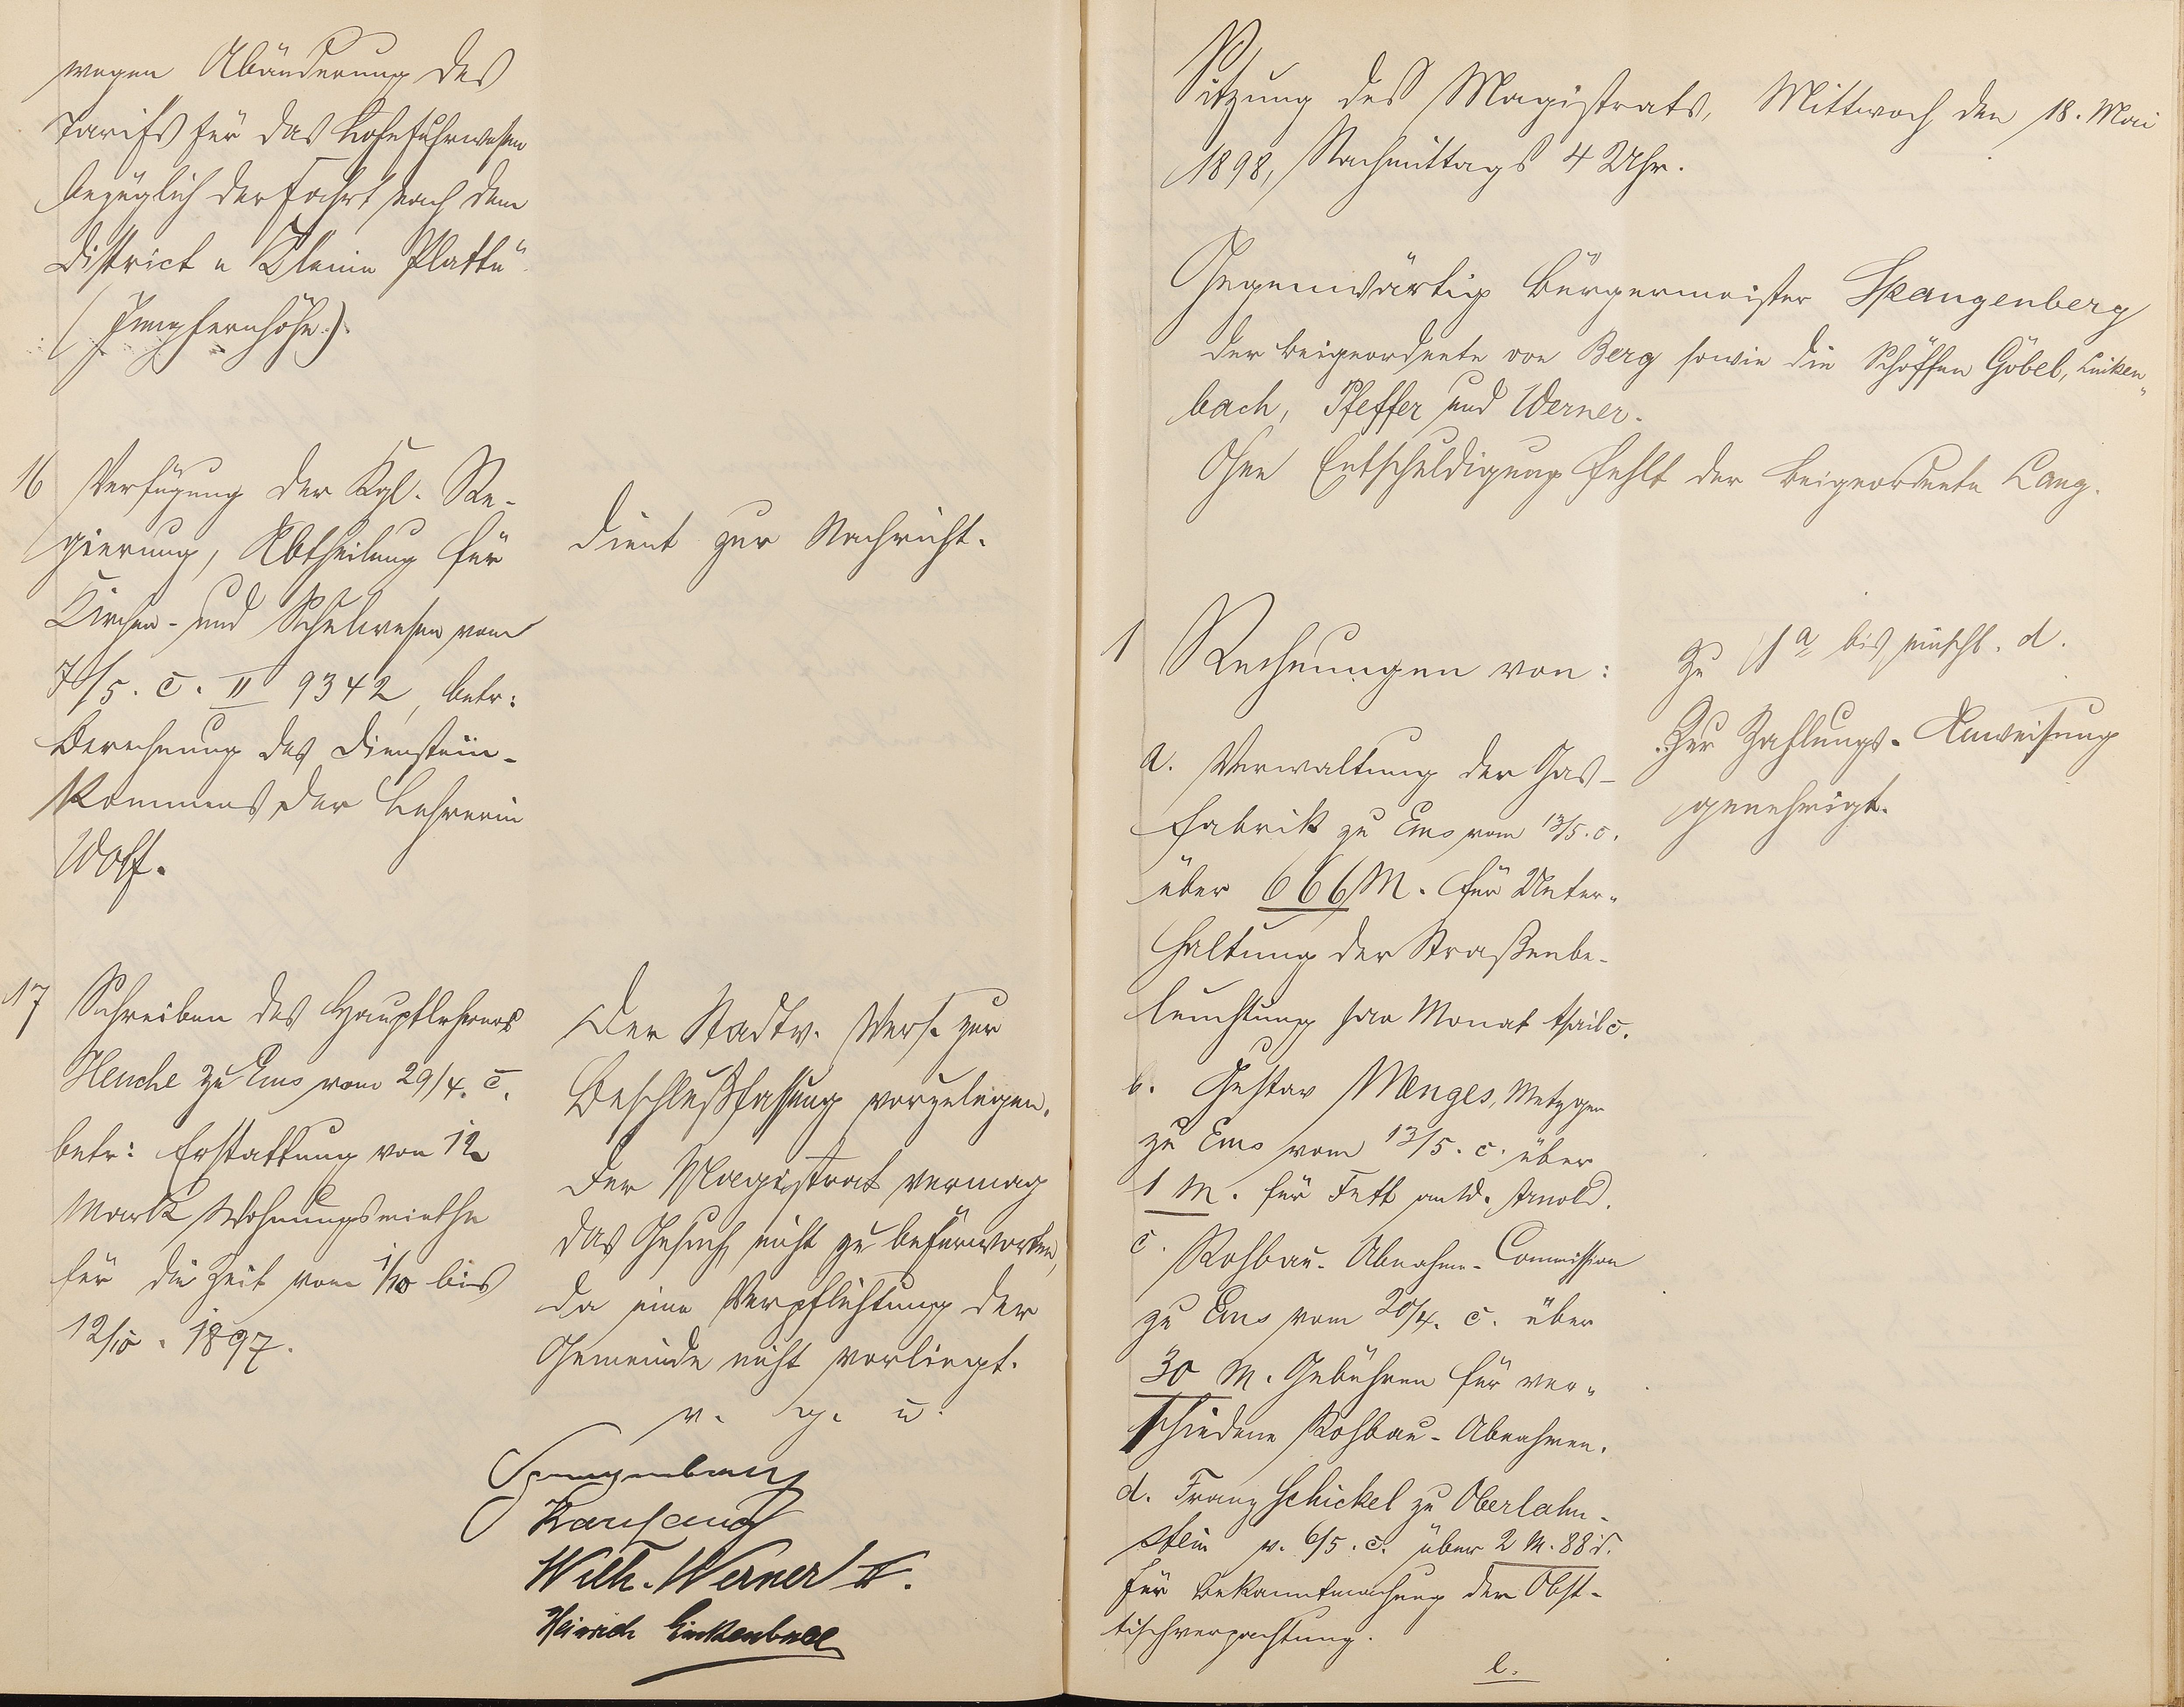 wegen Abänderung des
Tarifs für das Lohnfuhrwesen
bezüglich der Fahrt nach dem
District „Kleine Platte"
(Jungfernhöhe.)
16 Verfügung der Kgl. Re-
gierung, Abtheilung für
Kirchen- und Schulwesen vom
7/5. c. II 9342, betr:
Berechnung des Dienstein-
kommens der Lehrerin
Wolf.
Dient zur Nachricht.
17 Schreiben des Hauptlehrers
Henche zu Ems vom 29/4. c.
betr: Erstattung von 12
Mark Wohnungsmiethe
für die Zeit vom 1/10 bis
12/10. 1897.
Der Stadtv. Vers. zur
Beschlußfassung vorzulegen.
Der Magistrat vermag
das Gesuch nicht zu befürworten,
da eine Verpflichtung der
Gemeinde nicht vorliegt.
v. g. u.
Spangenberg
Wilh. Werner II.
Heinrich Linkenbach
Sitzung des Magistrats, Mittwoch den 18. Mai
1898, Nachmittags 4 Uhr.
Gegenwärtig Bürgermeister Spangenberg
der Beigeordnete von Berg sowie die Schöffen Göbel, Linken-
bach, Pfeffer und Werner.
Ohne Entschuldigung fehlt der Beigeordnete Lang.
1 Rechnungen von:
a. Verwaltung der Gas-
fabrik zu Ems vom 13/5. c.
über 666 M. für Unter-
haltung der Straßenbe-
leuchtung pro Monat April c.
b. Gustav Menges, Metzger
zu Ems vom 13/5. c. über
1 M. für Fett an W. Arnold.
c. Rohbau-Abnahme-Commission
zu Ems vom 20/4. c. über
30 M. Gebühren für ver-
schiedene Rohbau-Abnahmen.
d. Franz Schickel zu Oberlahn-
stein v. 6/5. c. über 2 M. 88 d.
für Bekanntmachung der Obst-
tischverpachtung.
e.
Zu 1a bis einschl. d.
Zur Zahlungs-Anweisung
genehmigt.